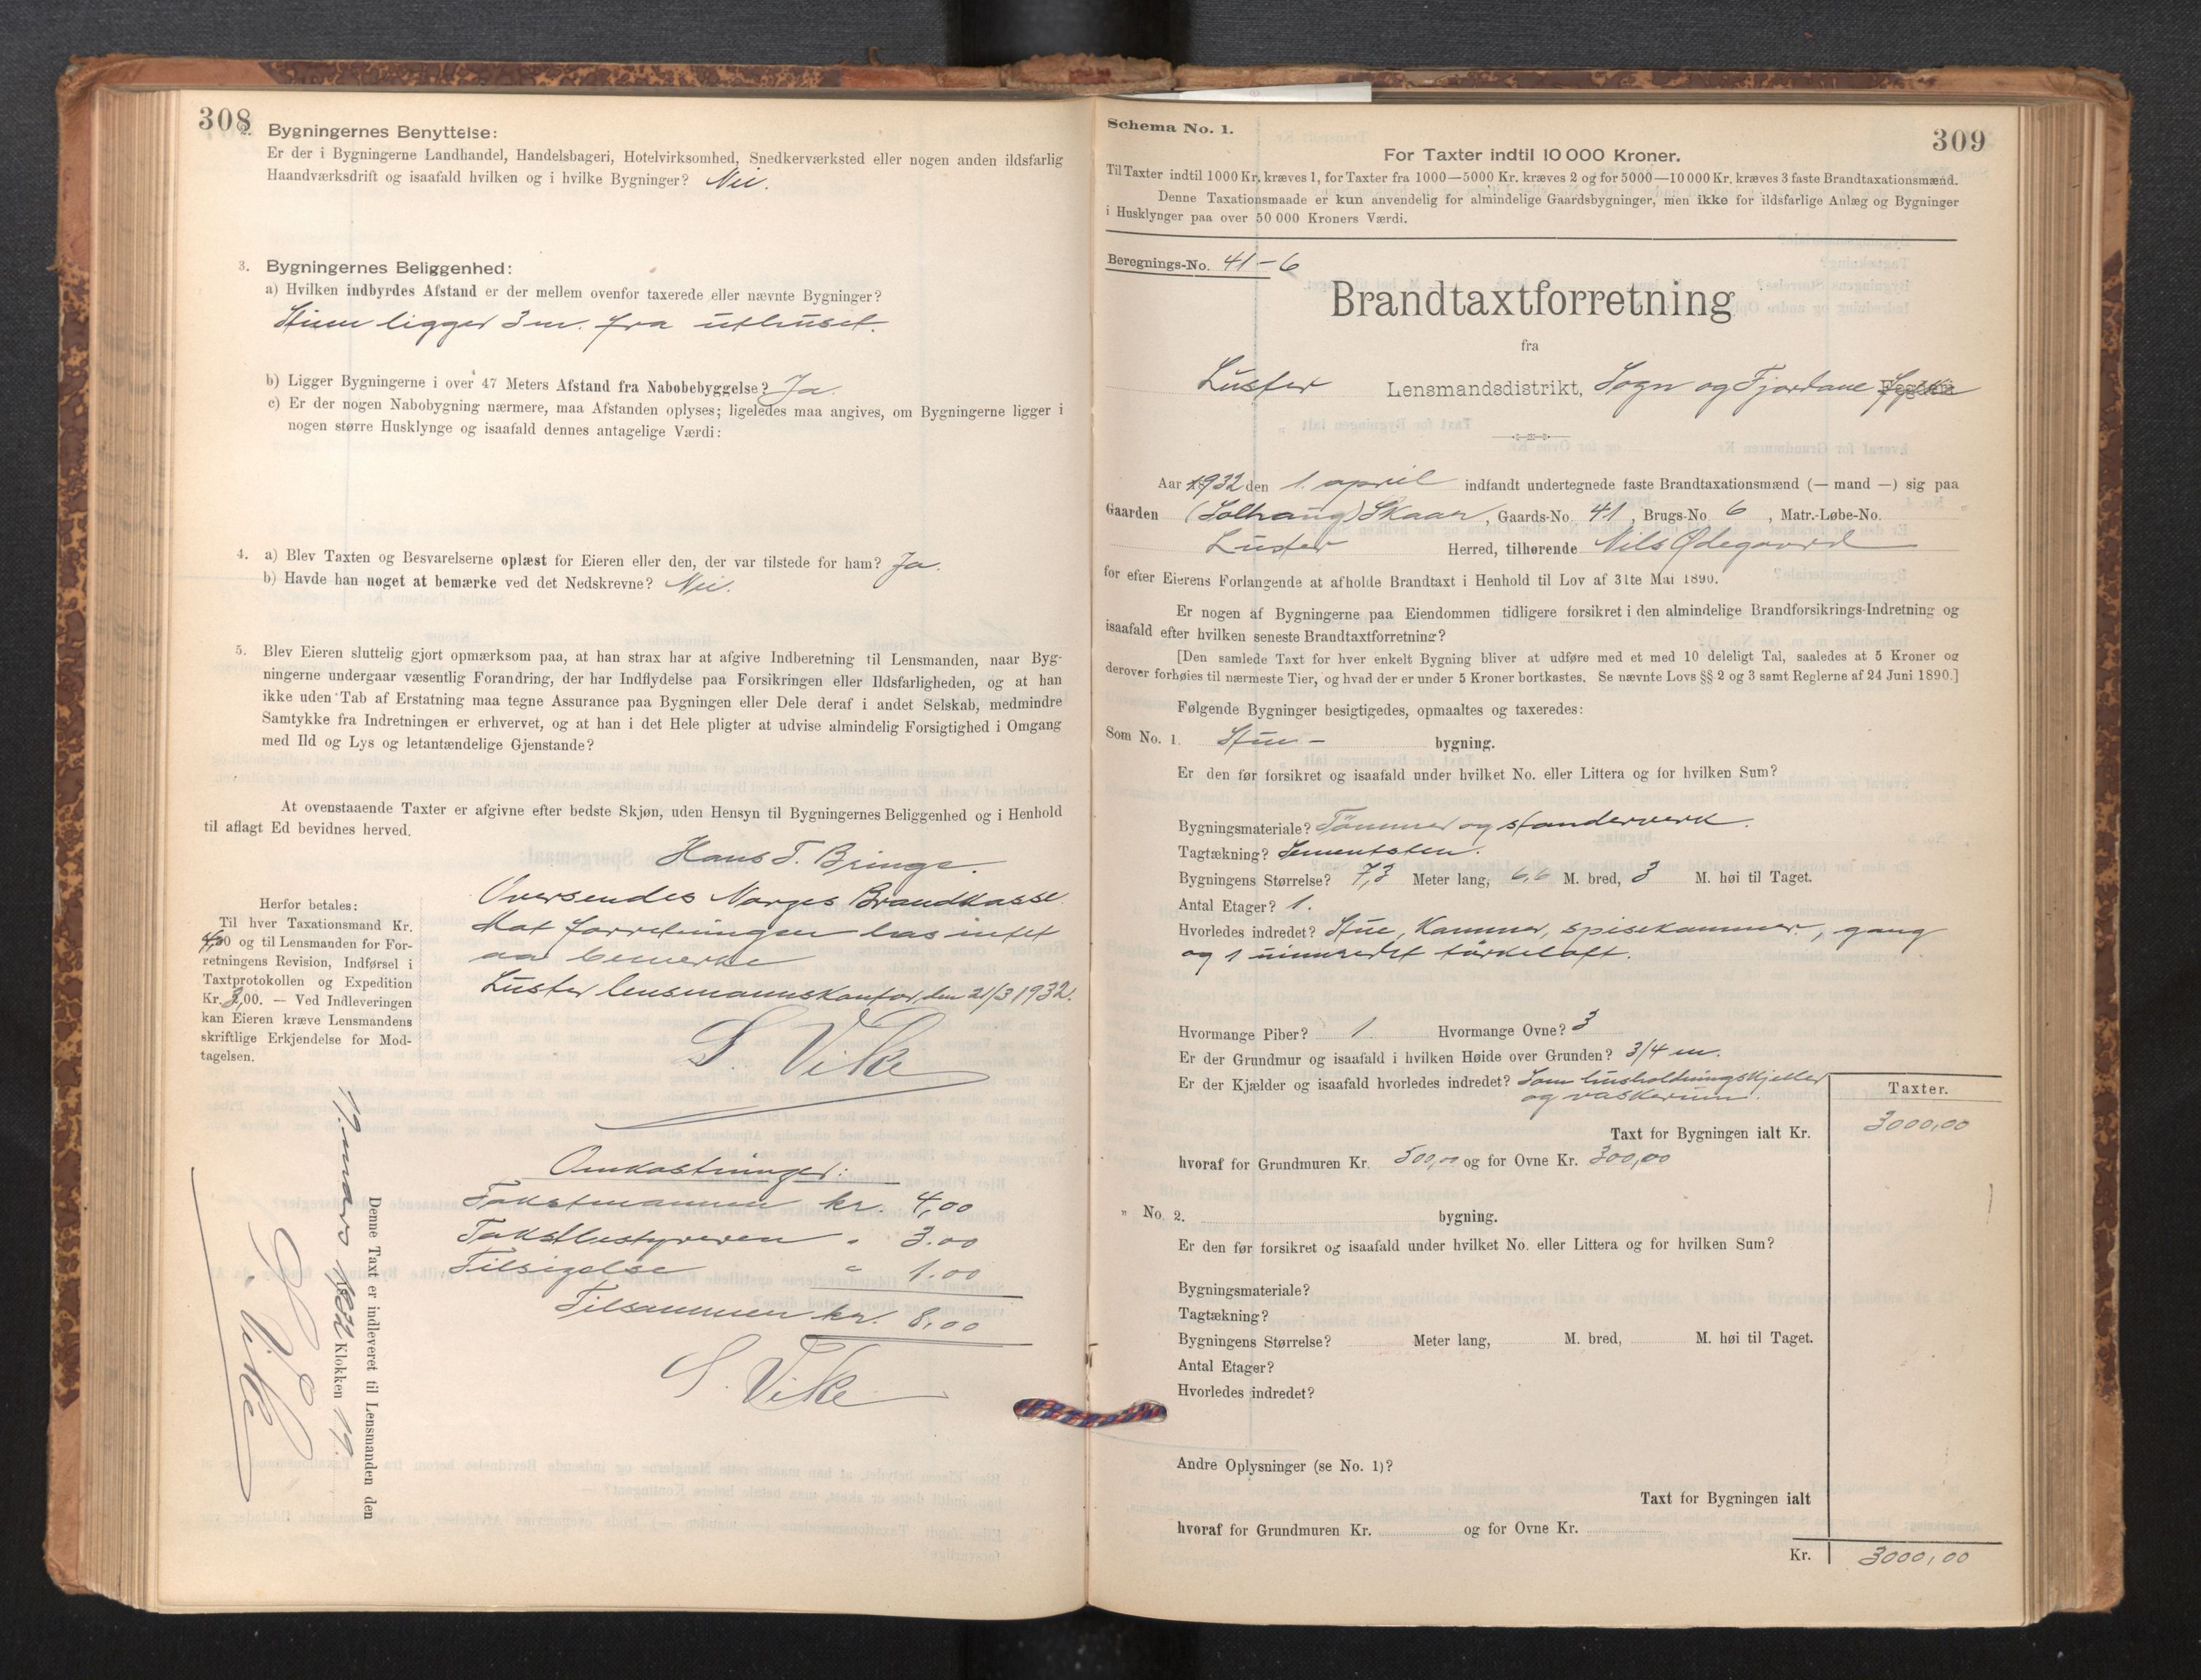 308
2. Bygningernes Benyttelse:
Er der i Bygningerne Landhandel, Handelsbageri, Hotelvirksomhed, Snedkerværksted eller nogen anden ildsfarlig
Haandværksdrift og isaafald hvilken og i hvilke Bygninger? Nei.
3. Bygningernes Beliggenhed:
a) Hvilken indbyrdes Afstand er der mellem ovenfor taxerede eller nævnte Bygninger?
Stuen ligger 3 m. fra uthuset.
b) Ligger Bygningerne i over 47 Meters Afstand fra Nabobebyggelse? Ja.
c) Er der nogen Nabobygning nærmere, maa Afstanden oplyses; ligeledes maa angives, om Bygningerne ligger i
nogen større Husklynge og isaafald dennes antagelige Værdi:
4. a) Blev Taxten og Besvarelserne oplæst for Eieren eller den, der var tilstede for ham? Ja.
b) Havde han noget at bemærke ved det Nedskrevne? Nei.
5. Blev Eieren sluttelig gjort opmærksom paa, at han strax har at afgive Indberetning til Lensmanden, naar Byg-
ningerne undergaar væsentlig Forandring, der har Indflydelse paa Forsikringen eller Ildsfarligheden, og at han
ikke uden Tab af Erstatning maa tegne Assurance paa Bygningen eller Dele deraf i andet Selskab, medmindre
Samtykke fra Indretningen er erhvervet, og at han i det Hele pligter at udvise almindelig Forsigtighed i Omgang
med Ild og Lys og letantændelige Gjenstande?
At ovenstaaende Taxter er afgivne efter bedste Skjøn, uden Hensyn til Bygningernes Beliggenhed og i Henhold
til aflagt Ed bevidnes herved.
Hans T. Bringe.
Oversendes Norges Brandkasse.
Mot forretningen has intet
aa bemerke
Luster lensmannskontor, den 21/3 1932.
S. Vike
Herfor betales:
Til hver Taxationsmand Kr.
4,00 og til Lensmanden for For-
retningens Revision, Indførsel i
Taxtprotokollen og Expedition
Kr. 3,00. — Ved Indleveringen
kan Eieren kræve Lensmandens
skriftlige Erkjendelse for Mod-
tagelsen.
Omkostninger:
Takstmannen kr. 4,00
Takstbestyreren " 3.00
Tilsigelse " 1.00
Tilsammen kr. 8,00
S. Vike
Denne Taxt er indleveret til Lensmanden den
mars 1932 Klokken
S. Vike
Schema No. 1.
309
For Taxter indtil 10 000 Kroner.
Til Taxter indtil 1000 Kr. kræves 1, for Taxter fra 1000—5000 Kr. kræves 2 og for 5000—10 000 Kr. kræves 3 faste Brandtaxationsmænd.
Denne Taxationsmaade er kun anvendelig for almindelige Gaardsbygninger, men ikke for ildsfarlige Anlæg og Bygninger
i Husklynger paa over 50 000 Kroners Værdi.
Beregnings-No. 41-6
Brandtaxtforretning
fra
Luster Lensmandsdistrikt, Sogn og Fjordane
Aar 1932 den 1. april indfandt undertegnede faste Brandtaxationsmænd (— mand —) sig paa
Gaarden (Solhaug) Skaar, Gaards-No. 41, Brugs-No. 6, Matr.-Løbe-No.
Luster Herred, tilhørende Nils Ødegaard
for efter Eierens Forlangende at afholde Brandtaxt i Henhold til Lov af 31te Mai 1890.
Er nogen af Bygningerne paa Eiendommen tidligere forsikret i den almindelige Brandforsikrings-Indretning og
isaafald efter hvilken seneste Brandtaxtforretning?
[Den samlede Taxt for hver enkelt Bygning bliver at udføre med et med 10 deleligt Tal, saaledes at 5 Kroner og
derover forhøies til nærmeste Tier, og hvad der er under 5 Kroner bortkastes. Se nævnte Lovs §§ 2 og 3 samt Reglerne af 24 Juni 1890.]
Følgende Bygninger besigtigedes, opmaaltes og taxeredes:
Som No. 1. Stue- bygning.
Er den før forsikret og isaafald under hvilket No. eller Littera og for hvilken Sum?
Bygningsmateriale? Tømmer og standerverk.
Tagtækning? Sementsten.
Bygningens Størrelse? 7,3 Meter lang, 6,6 M. bred, 3 M. høi til Taget.
Antal Etager? 1.
Hvorledes indredet? Stue, Kammer, spisekammer, gang
og 1 uinnredet tørkeloft.
Hvormange Piber? 1 Hvormange Ovne? 3
Er der Grundmur og isaafald i hvilken Høide over Grunden? 3/4 m.
Er der Kjælder og isaafald hvorledes indredet? Som husholdningskjeller
og vaskerum.
Taxter.
Taxt for Bygningen ialt Kr. 3000,00
hvoraf for Grundmuren Kr. 500,00 og for Ovne Kr. 300,00
" No. 2. bygning.
Er den før forsikret og isaafald under hvilket No. eller Littera og for hvilken Sum?
Bygningsmateriale?
Tagtækning?
Bygningens Størrelse? Meter lang, M. bred, M. høi til Taget.
Antal Etager?
Hvorledes indredet?
Andre Oplysninger (se No. 1)?
Taxt for Bygningen ialt
hvoraf for Grundmuren Kr. og for Ovne Kr.
Kr. 3000,00